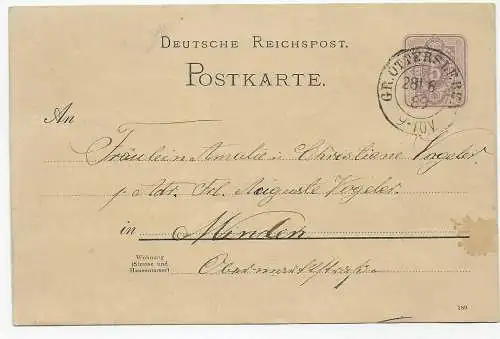 DEUTSCHE REICHSPOST.
POSTKARTE.
GR. OTTERSLEBEN
28 6
89
9-10V
An
Fräulein Amalie & Christiene Vogeler
p. Adr. Frl. Auguste Vogeler.
in Minden
Wohnung
(Strasse und
Hausnummer)
Obermarktstraße
189